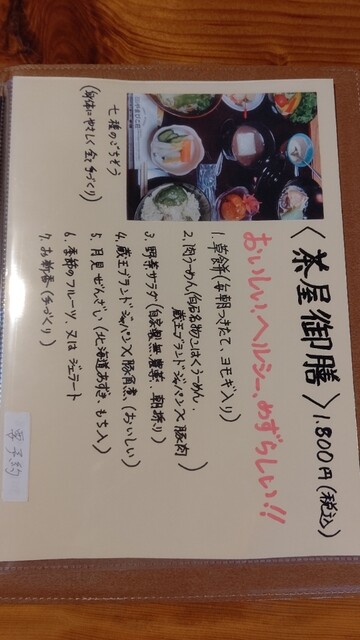 〈茶屋御膳〉1.800円(税込)
おいしい、ヘルシー、めずらしい!!
1. 草餅(毎朝つきたて、ヨモギ入り)
2. 肉うーめん(白石名物こはくうーめん、
蔵王ブランドジャパンX豚肉)
3. 野菜サラダ(自家製無農薬、朝採り)
4. 蔵王ブランドジャパンX豚角煮(おいしい)
5. 月見ぜんざい(北海道あずき、もち入)
6. 季節のフルーツ、又はジェラート
7. お新香(手づくり)
七種のごちそう
(身体にやさしく全て手づくり)
要予約